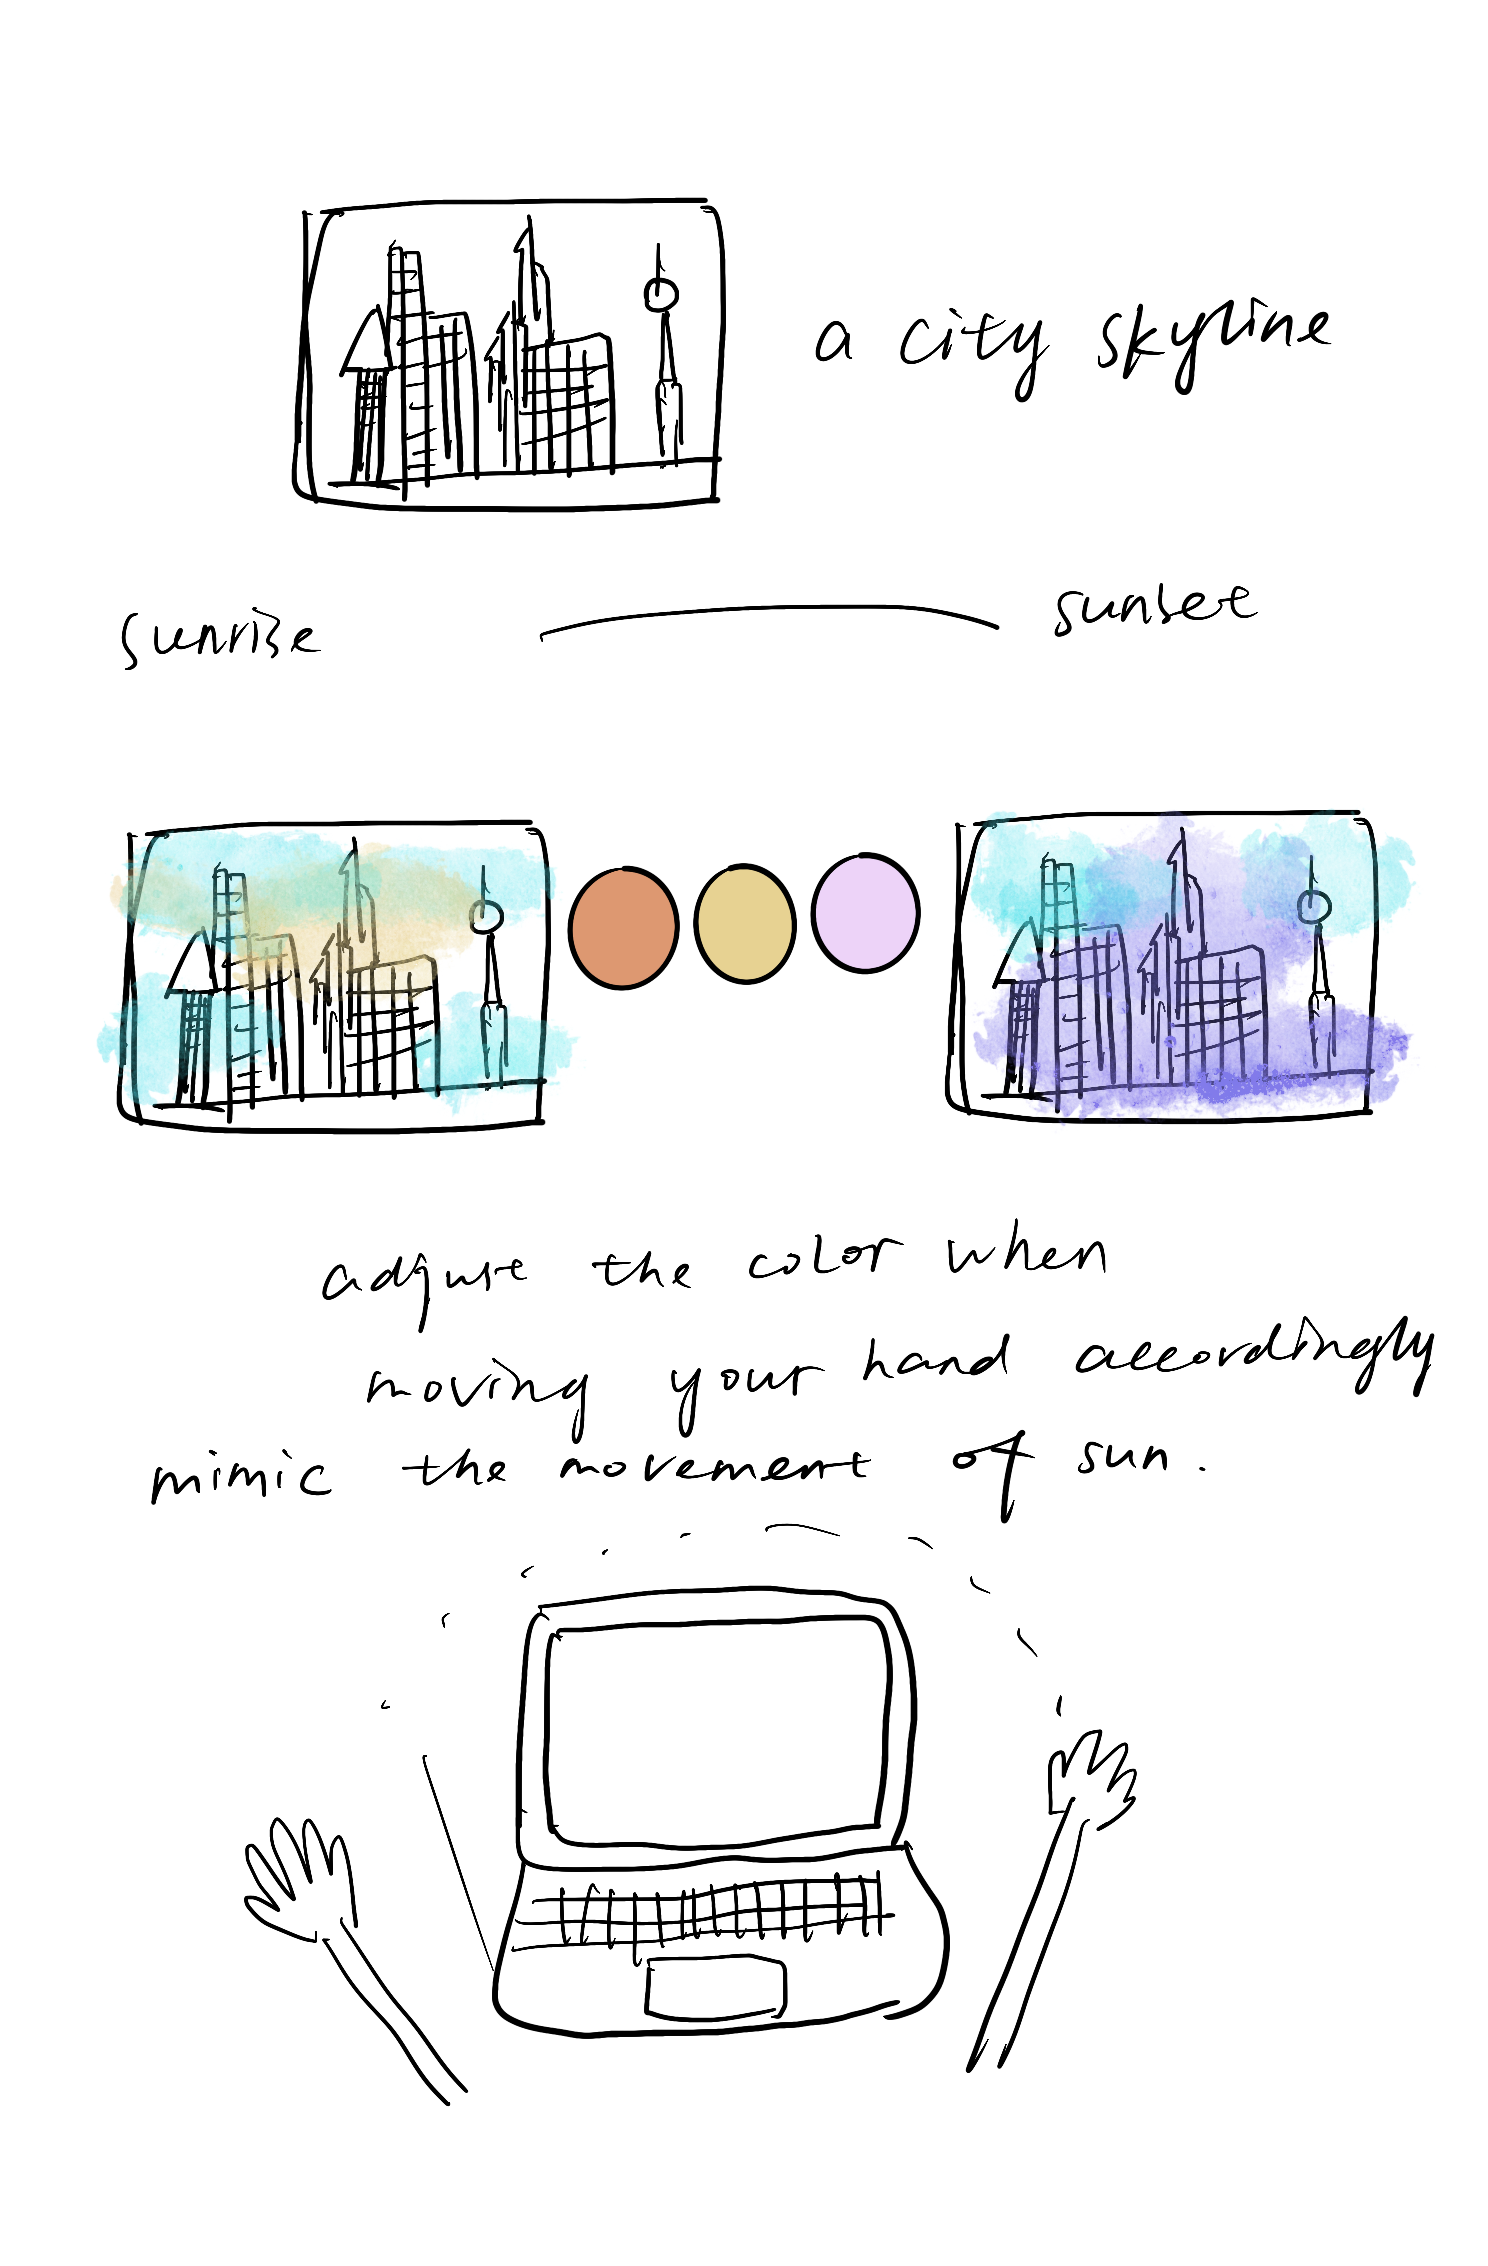 a city skyline
sunrise
sunset
adjust the color when
moving your hand accordingly
mimic the movement of sun.